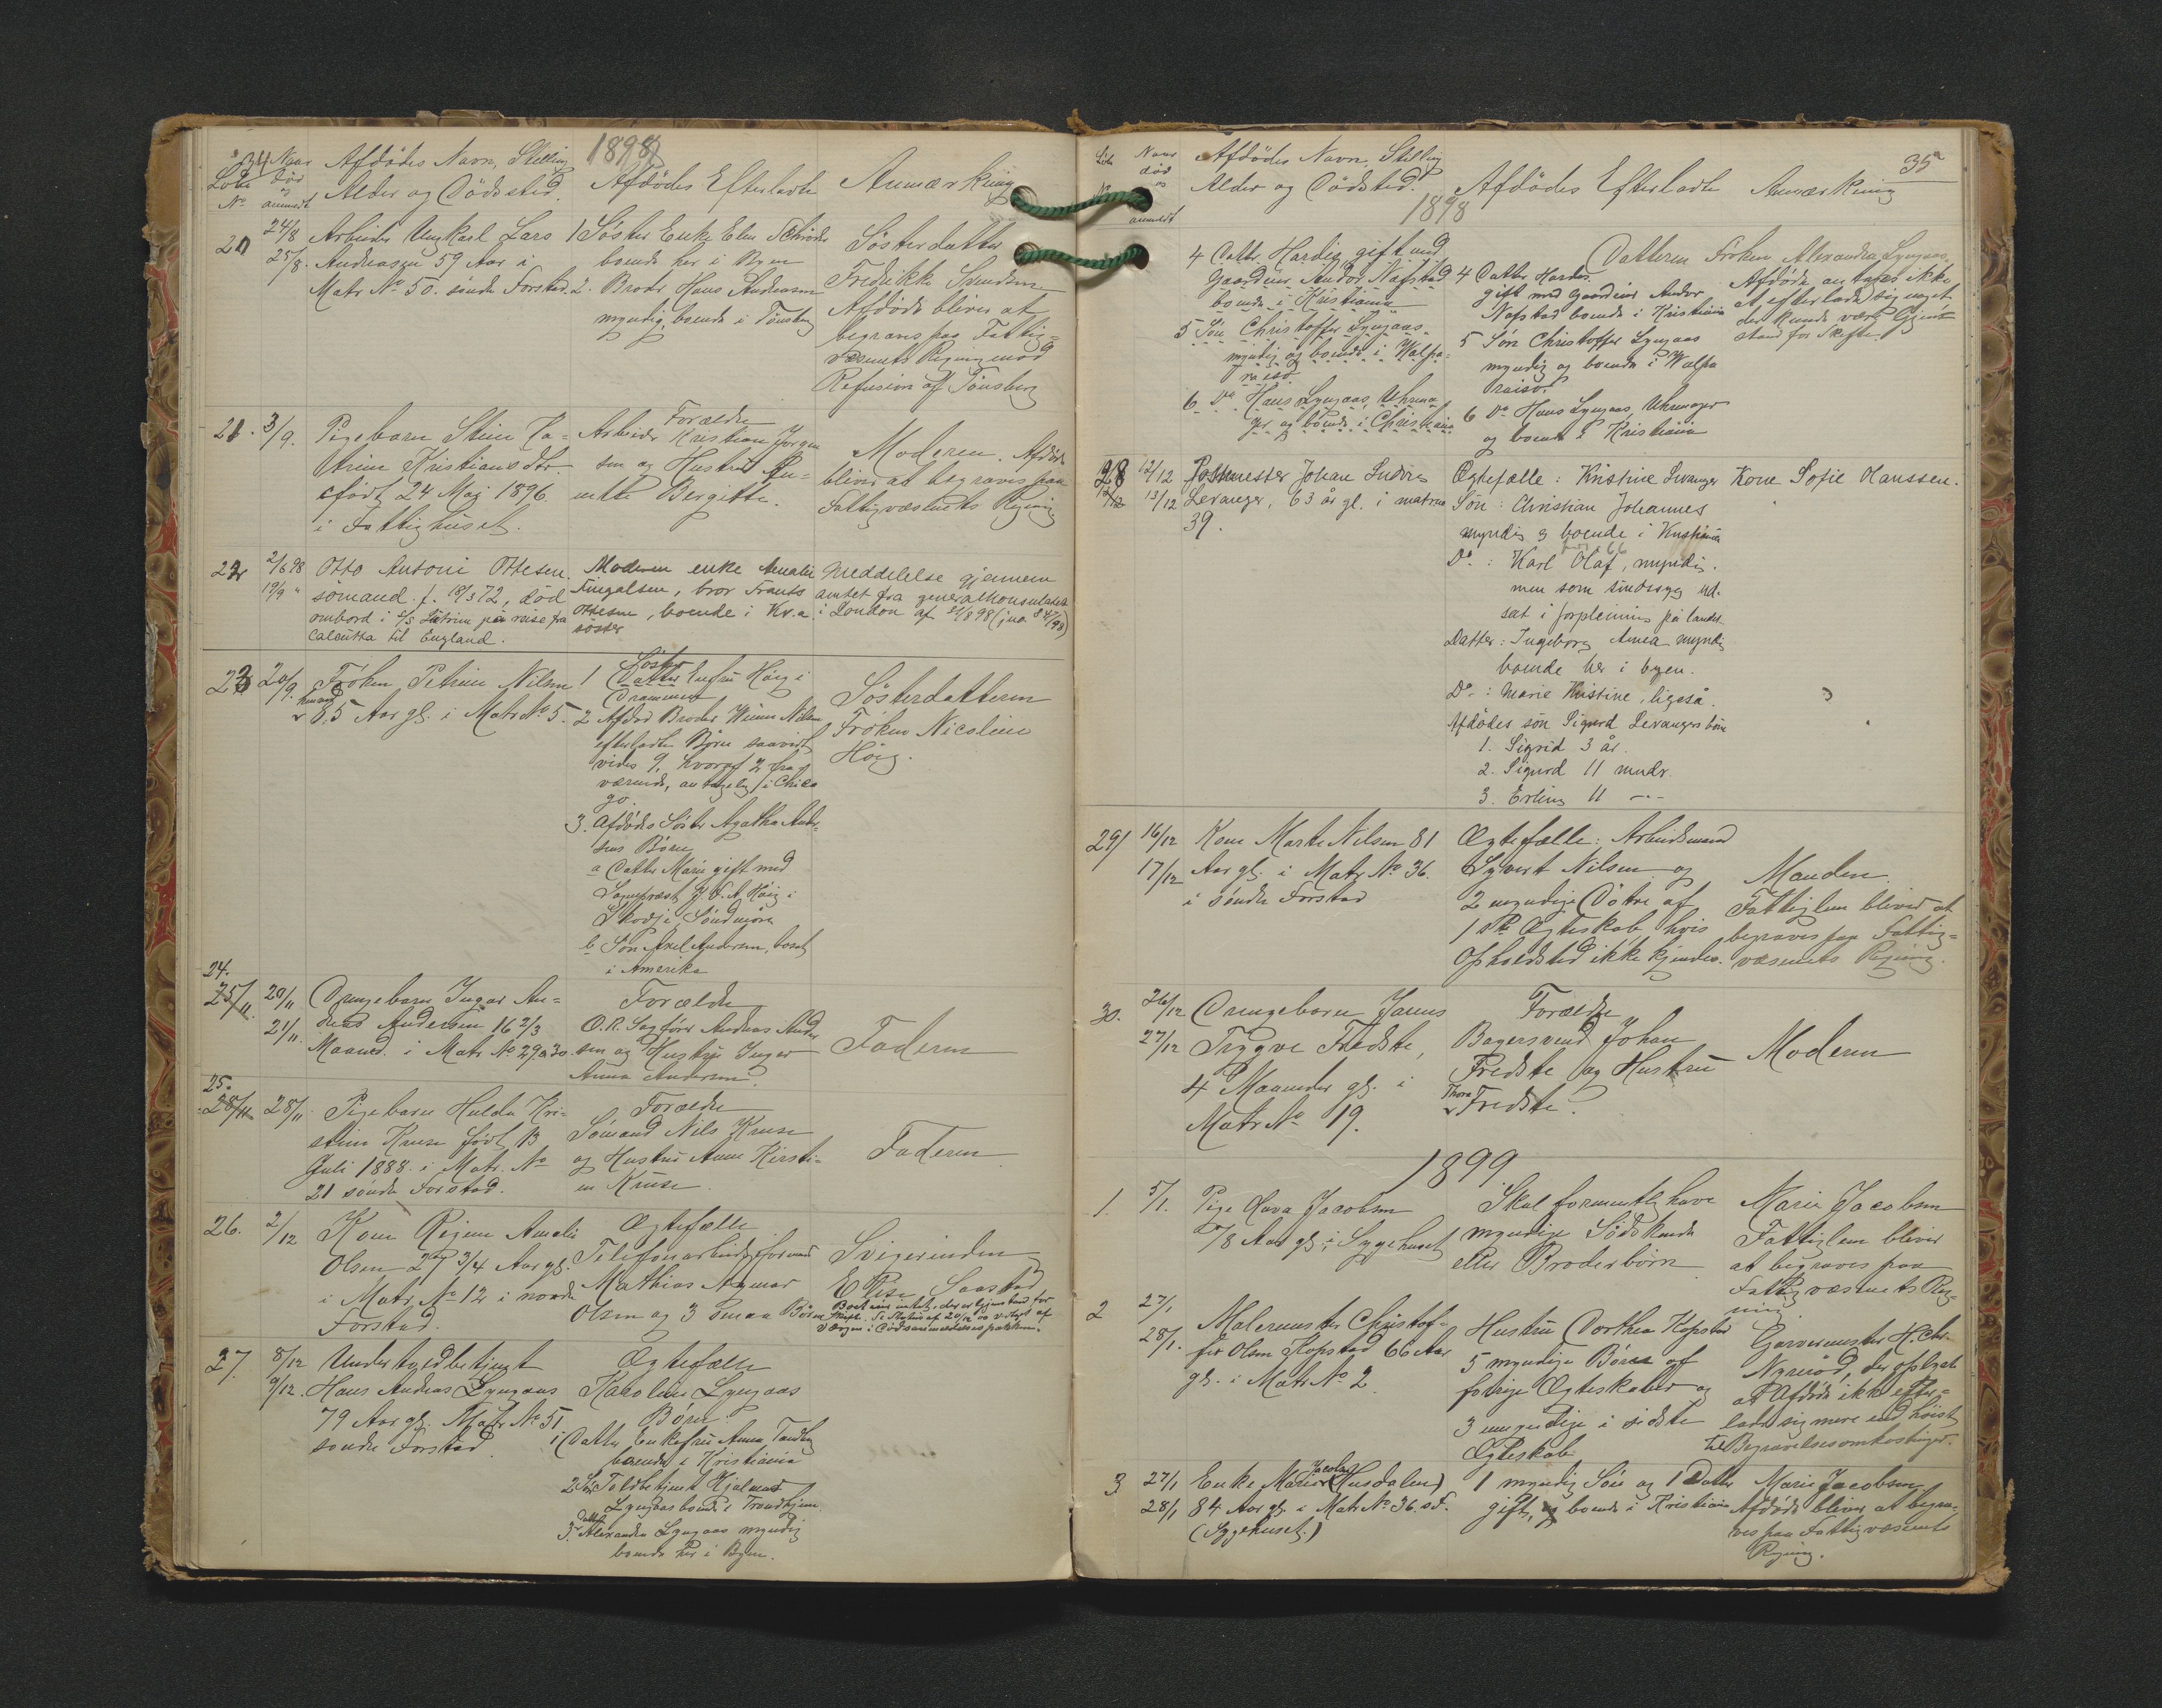 34
1898
Naar død og anmeldt
Løbe No
Afdødes Navn, Stilling
Alder og Dødssted.
Afdødes Efterladte
Anmærkning
20
24/8
25/8.
Arbeider Ungkarl Lars
Andreasen 59 Aar i
Matr No 50. søndre Forstad.
1 Søster Enke Elen Schrøder
boende her i Byen
2. Broder Hans Andreasen
myndig, boende i Tønsberg
Søsterdatter
Fredrikke
Afdøde bliver at
begraves paa Fattig-
væsenets Regning mod
Refusion af Tønsberg
21. 3/9.
Pigebarn Stine Ka-
trine Kristiansdtr
født 24 Maj 1896
i Fattighuset.
Forældre
Arbeider Kristian Jørgen
sen og Hustru An-
nette Bergitte.
Moderen. Afdøde
bliver at begraves paa
Fattigvæsenets Regning
22
2/6 98
19/9 "
Otto Antoni Ottesen.
sømand. f. 18/3 72, død
ombord i S/S på reise fra
Calcutta til England.
Moderen enke Amalie
Fingalsen, bror Frants
Ottesen, boende i Kr.a
søster
Meddelelse gjennem
amtet fra generalkonsulatet
i London af 31/8 98 (jno. 847/98)
23
20/9.
Frøken Petrine Nilsen
85 Aar gl. i Matr No 5.
1 Søster Datter Enkefru Høeg i
Drammen
2 Afdød Broder Nilsen
efterladte Børn saavidt
vides 9, hvoraf 2 fra
værende, antagelig i Chica
go.
3. Afdødes Søster Agathe Ander
sens Børn
a Datter Marie gift med
Sognepræst Høeg i
Skodje Søndmøre
b Søn Axel Andersen, bosat
i Amerika
Søsterdatteren
Frøken Nicoline
Høeg.
24.
25/11
20/11
21/11
Drengebarn Ingar An-
dreas Andersen 16 2/3
Maaned. i Matr No 29 a 30.
Forældre
O.R. Sagfører Andreas Ander
sen og Hustru Inger
Anna Andersen.
Faderen
25.
28/11 28/11.
Pigebarn Hulda Kri-
stine Kruse født 13
Juli 1888. i Matr. No
21 søndre Forstad.
Forældre
Sømand Nils Kruse
og Hustru Anne Kirsti-
ne Kruse.
Faderen
26. 2/12
Kone Regine Amalie
Olsen 29 3/4 Aar gl.
i Matr No 12 i nordre
Forstad.
Ægtefælle
Telefonarbeidsformand
Mathias
Olsen og 3 smaa Børn
Svigerinden
Elise Saastad
Boet eier intet, der er Gjenstand for
Skifte.
27.
8/12
9/12.
Undertoldbetjent
Hans Andreas Lyngaas
79 Aar gl. Matr. No 51
søndre Forstad.
Ægtefælle
Karoline Lyngaas
Børn:
1 Datter Enkefru Anna Tandberg
boende i Kristiania
2 Søn Toldbetjent Hjalmar
Lyngaas boende i Trondhjem
3. Datter Alexandra Lyngaas myndig
boende her i Byen.
35a
Løbe No
Naar død og anmeldt
Afdødes Navn, Stilling
Alder og Dødssted.
1898
Afdødes Efterladte
Anmærkning
4 Datter. Hardis gift med
Gaardeier Andor Nafstad
boende i Kristiania
5 Søn Christoffer Lyngaas
myndig og boende i Walpa-
raiso.
6 Do Hans Lyngaas, Uhrma
ger og boende i Christiania
4 Datter Hardis
gift med Gaardeier Andor
Nafstad boende i Kristiania
5 Søn Christoffer Lyngaas
myndig og boende i Walpa
raiso.
6 Do Hans Lyngaas, Uhrmager
og boende i Kristiania
Datteren Frøken Alexandra Lyngaas.
Afdøde antages ikke
at efterlade sig noget
der kunde være Gjen-
stand for Skifte.
28
12/12
12/12
13/12
Postmester Johan Ludvig
Levanger, 63 år gl. i matrno
39.
Ægtefælle: Kristine Levanger
Søn: Christian Johannes
myndig & boende i Kristiania
Do: Karl Olaf, myndig.
men som sindssyg ud-
sat i forpleining på landet.
Datter: Ingeborg Anea myndig
boende her i byen.
Do: Marie Kristine, ligeså.
Afdødes søn Sigurd Levangers børn
1. Sigrid 3 år.
2. Sigurd 11 mndr.
3. Erling 11 -"-
Kone Sofie Hanssen.
29
16/12
17/12
Kone Marte Nilsen 81
Aar gl. i Matr No 36.
i søndre Forstad
Ægtefælle: Arbeidsmand
Syvert Nilsen og
2 myndige Døtre af
1ste Ægteskab hvis
Opholdssted ikke kjendes.
Manden.
Fattiglem bliver at
begraves paa Fattig-
væsenets Regning.
30.
26/12
27/12
Drengebarn Janus
Trygve Fredste,
4 Maaneder gl. i
Matr No 19.
Forældre
Bagersvend Johan
Fredste og Hustru
Thora
Fredste.
Moderen
1899
1. 5/1.
Pige Lava Jacobsen
78 Aar gl. i Sygehuset
Skal formentlig have
myndige Sødskende
eller Broderbørn
Marie Jacobsen
Fattiglem bliver
at begraves paa
Fattigvæsenets Reg-
ning
2
27/1
28/1.
Malermester Christof-
fer Olsen Kopstad 66 Aar
gl. i Matr No 2
Hustru Dorthea Kopstad
5 myndige Børn af
forrige Ægteskaber og
3 umyndige i sidste
Ægteskab
Garvermester H. Chr.
Nyrød, der oplyste
at Afdøde ikke efter-
lader sig mere end høist
til Begravelsesomkostninger.
3
27/1
28/1
Enke Maria Jacobsen (Husdalen)
84 Aar gl. i Matr No 36. s.F.
(Sygehuset.)
1 myndig Søn og 1 Datter
gift, og boende i Kristiania
Marie Jacobsen
Afdøde bliver at begra-
ves paa Fattigvæsenets
Regning.